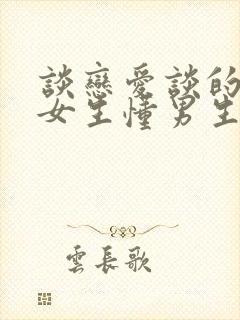 談戀愛談的
女生懂男生
雲長歌